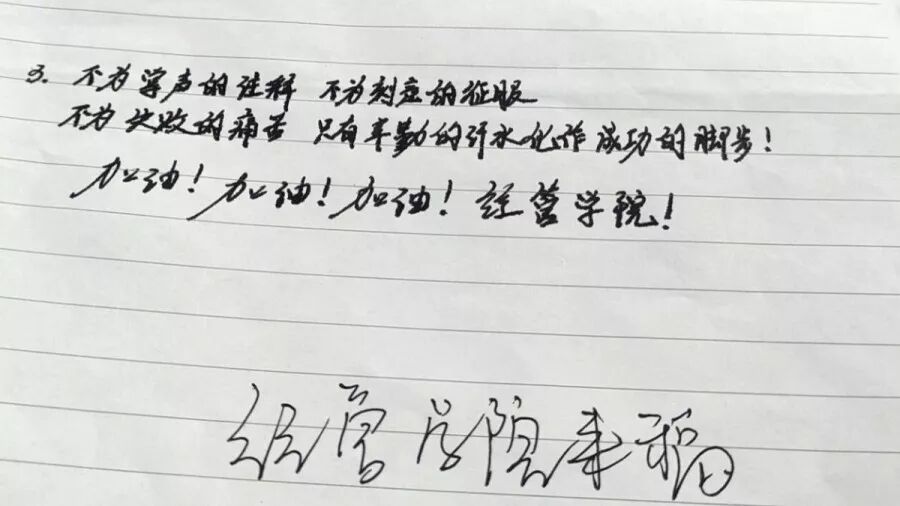 3. 不为掌声的注释 不为刻意的征服
不为失败的痛苦 只有辛勤的汗水化作成功的脚步!
加油!加油!加油!经营学院!
经营学院来稿